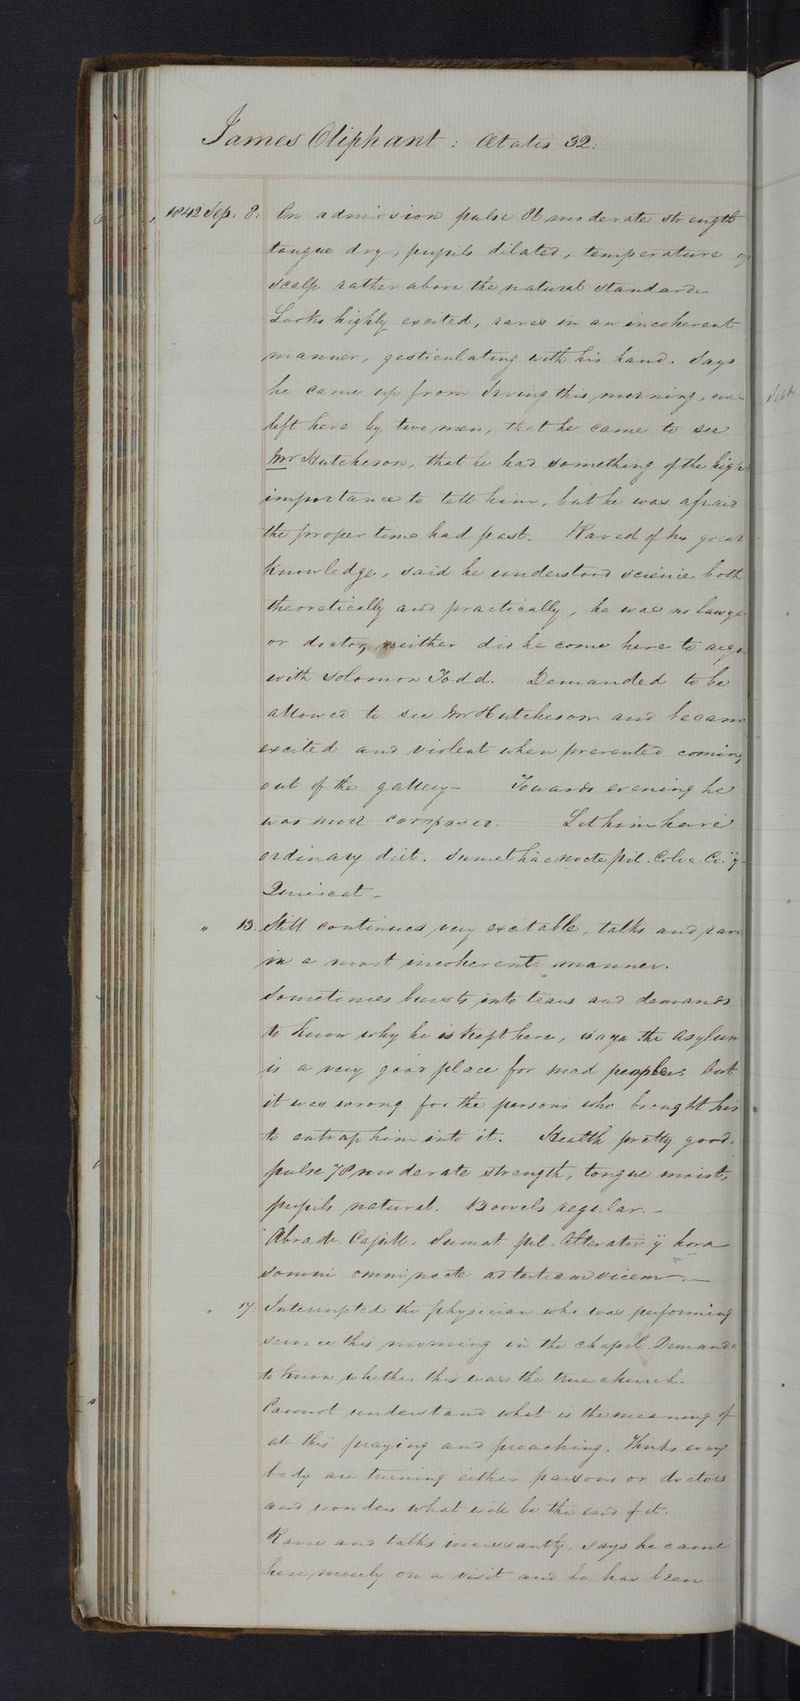 James Oliphant : Ætatis 32:
1842 Sep. 8. On admission pulse 86 moderate strength
tongue dry, pupils dilated, temperature of
scalp rather above the natural standard.
Looks highly excited, raves in an incoherent
manner, gesticulating with his hand. Says
he came up from Irvine this morning, was
left here by two men, that he came to see
Mr Hutcheson, that he had something of the high
importance to tell him, but he was afraid
the proper time had past. Raved of his great
knowledge, said he understood science both
theoretically and practically, he was no lawye
or doctor, neither did he come here to argu
with Solomon Todd. Demanded to be
allowed to see Mr Hutcheson and became
excited and violent when prevented coming
out of the gallery – Towards evening he
was more composed. Let him have
ordinary diet. Sumat hac nocte pil. Coloc. Co. ij
Quiescat –
" 13. Still continues very excitable, talks and rave
in a most incoherent manner.
Sometimes bursts into tears and demands
to know why he is kept here, says the asylum
is a very good place for mad people but
it was wrong for the persons who brought him
to entrap him into it. Health pretty good.
pulse 78 moderate strength, tongue moist,
pupils natural. Bowels regular. –
Abrade. Capill. Sumat pil. Alterativ ij hora
somni omni nocte ad tertiam vicem. –
" 17. Interrupted the physician who was performing
service this morning in the chapel. Demands
to know whether this was the true church.
Cannot understand what is the meaning of
all this praying and preaching. Thinks every
body are turning either parsons or doctors
and wonders what will be the end of it.
Raves and talks incessantly, says he came
here merely on a visit and he has been
Sept